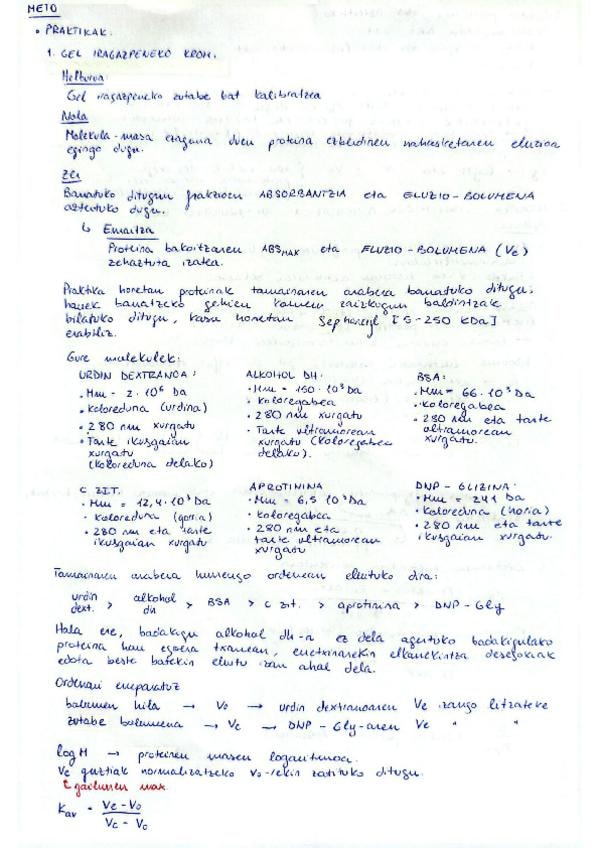 METO
• PRAKTIKAK.
1. GEL IRAGAZPENEKO KROM.
Helburua
Gel iragazpeneko zutabe bat kalibratzea
Nola
Molekula-masa ezaguna duen proteina ezberdinen nahasketaren eluzioa
egingo dugu.
Zer
Banatuko ditugun frakzioen ABSORBANTZIA eta ELUZIO-BOLUMENA
aztertuko dugu.
↳ Emaitza
Proteina bakoitzaren ABSMAX eta ELUZIO-BOLUMENA (Ve)
zehaztuta izatea.
Praktika honetan proteinak tamainaren arabera banatuko ditugu;
hauek banatzeko gehien komeni zaizkigun baldintzak
bilatuko ditugu, kasu honetan Sephacryl [5-250 KDa]
erabiliz.
Gure molekulek:
URDIN DEXTRANOA:
• Mm = 2 · 10⁶ Da
• Koloreduna (urdina)
• 280 nm xurgatu
• Tarte ikusgaian
xurgatu
(koloreduna delako)
ALKOHOL DH:
• Mm = 150 · 10³ Da
• Koloregabea
• 280 nm xurgatu
• Tarte ultramorean
xurgatu (koloregabea
delako).
BSA:
• Mm = 66 · 10³ Da
• Koloregabea
• 280 nm eta tarte
ultramorean
xurgatu.
C ZIT.
• Mm = 12,4 · 10³ Da
• Koloreduna (gorria)
• 280 nm eta tarte
ikusgaian xurgatu
APROTININA
• Mm = 6,5 · 10³ Da
• Koloregabea
• 280 nm eta
tarte ultramorean
xurgatu
DNP-GLIZINA:
• Mm = 241 Da
• Koloreduna (horia)
• 280 nm eta tarte
ikusgaian xurgatu.
Tamainaren arabera hurrengo ordenean eluituko dira:
urdin dext. > alkohol dh > BSA > C zit. > aprotinina > DNP-Gly
Hala ere, badakigu alkohol dh-a ez dela agertuko badakigulako
proteina hau egoera txarrean, erretxinarekin elkarrekintza desegokiak
edota beste batekin eluitu izan ahal dela.
Ordenari erreparatuz
bolumen hila → Vo → urdin dextranoaren Ve izango litzateke
zutabe bolumena → Vc → DNP-Gly-aren Ve " "
log M → proteinen masen logaritmoa.
Ve guztiak normalizatzeko Vo-rekin zatituko ditugu.
↳ gailurren max.
Kav = Ve - Vo / Vc - Vo